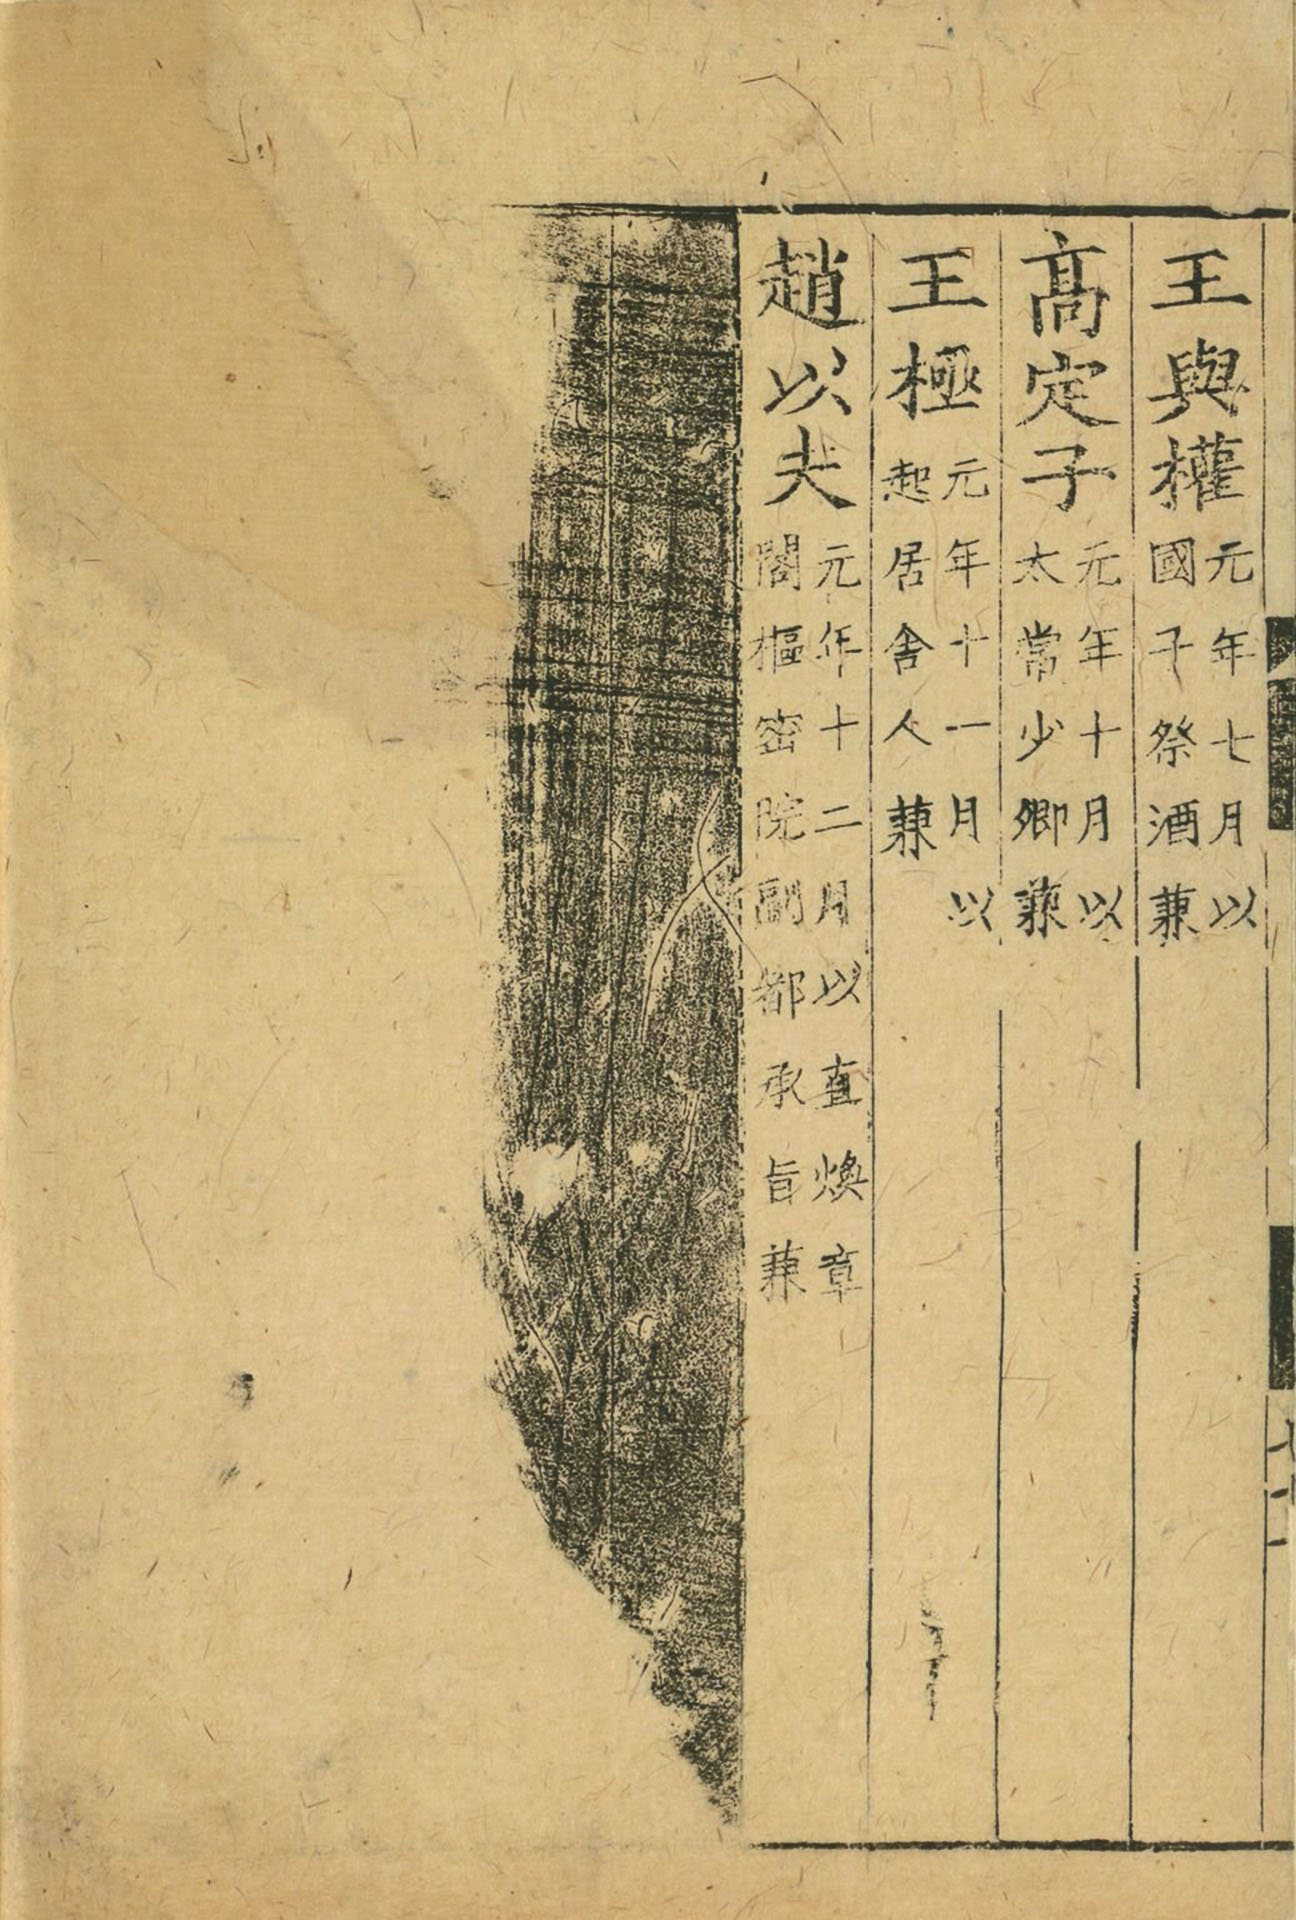 王與權元年七月以國子祭酒兼
髙定子元年十月以太常少卿兼
王極元年十一月以起居舍人兼
趙以夫元年十二月以直煥章閣樞密院副都承旨兼